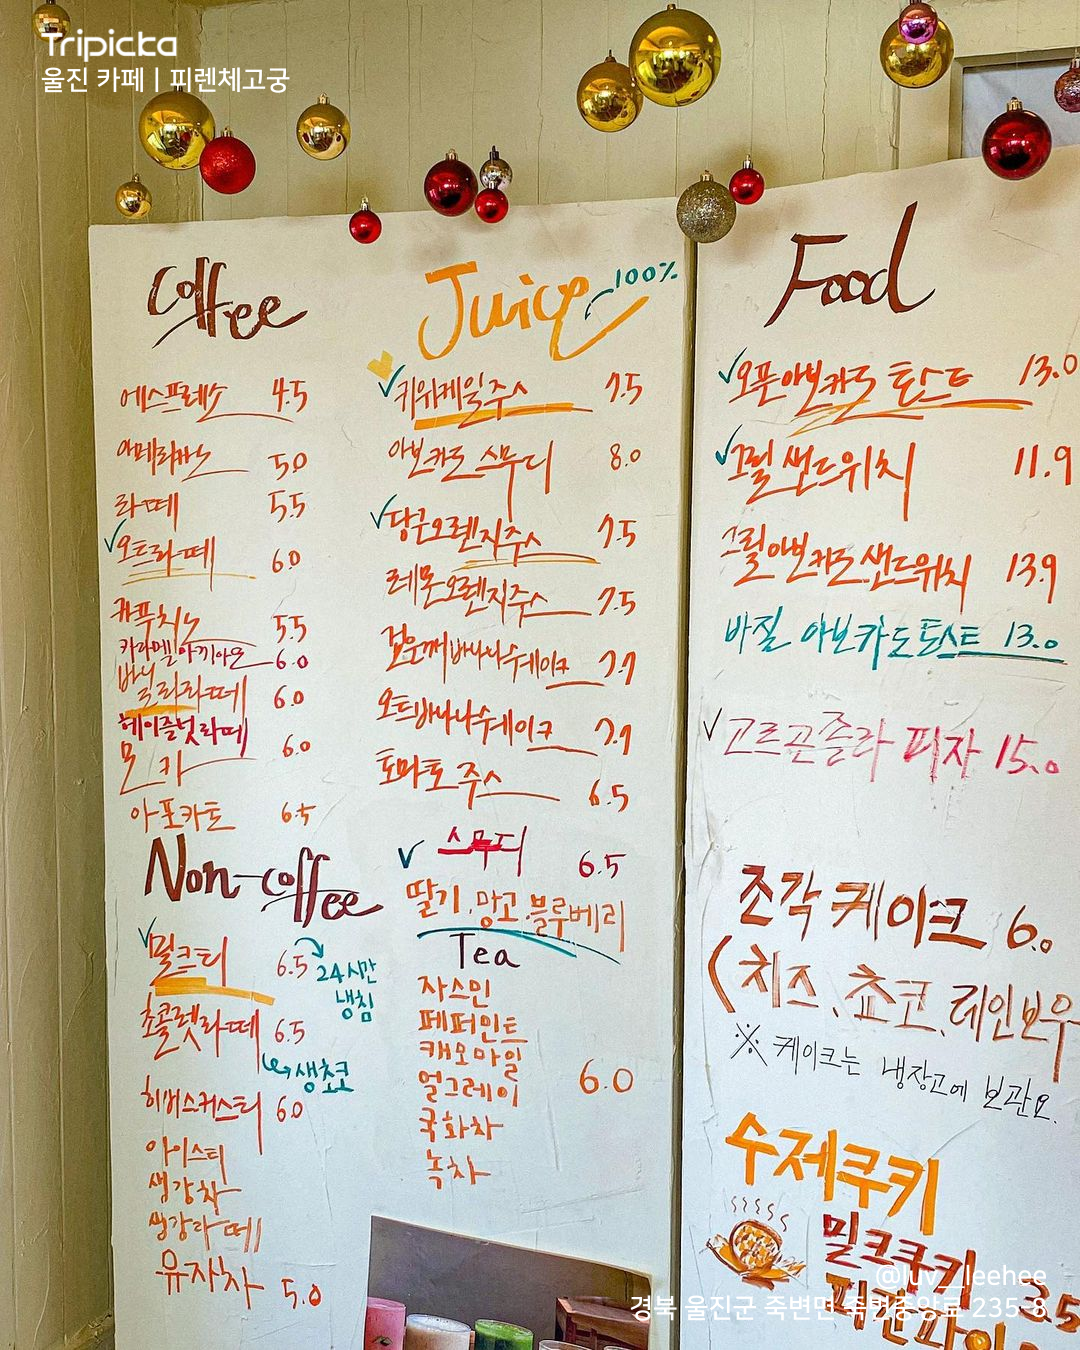 Tripicka
울진 카페 | 피렌체고궁
Coffee
에스프레소 4.5
아메리카노 5.0
라떼 5.5
✓오트라떼 6.0
카푸치노 5.5
카라멜마끼아또 6.0
바닐라라떼 6.0
헤이즐넛라떼
모카 6.0
아포카토 6.5
Non-coffee
✓밀크티 6.5
24시간
냉침
쵸콜렛라떼 6.5
생쵸코
히비스커스티 6.0
아이스티
생강차
생강라떼
유자차 5.0
Juice 100%
✓키위케일주스 7.5
아보카도 스무디 8.0
✓당근오렌지주스 7.5
레몬오렌지주스 7.5
검은깨바나나쉐이크 7.7
오트바나나쉐이크 7.7
토마토주스 6.5
✓스무디 6.5
딸기, 망고, 블루베리
Tea
자스민
페퍼민트
캐모마일
얼그레이 6.0
국화차
녹차
Food
✓오픈아보카도 토스트 13.0
✓그릴샌드위치 11.9
그릴아보카도샌드위치 13.9
바질 아보카도토스트 13.0
✓고르곤졸라 피자 15.0
조각 케이크 6.0
(치즈, 쵸코, 레인보우
※ 케이크는 냉장고에 보관요.
수제쿠키
밀크쿠키
피칸파이 3.5
@luv__leehee
경북 울진군 죽변면 죽변중앙로 235-8